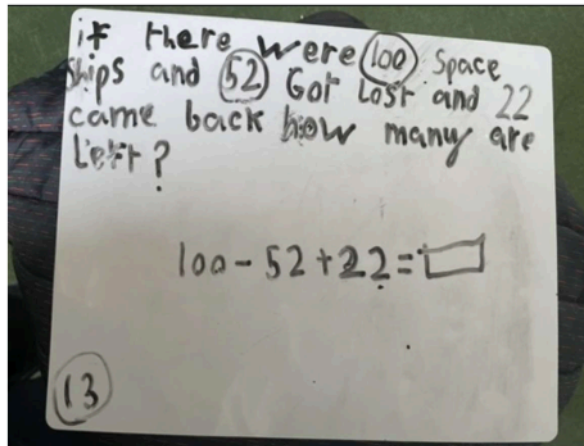 if there were 100 Space
Ships and 52 Got Lost and 22
came back how many are
Left?
100 - 52 + 22 =
13